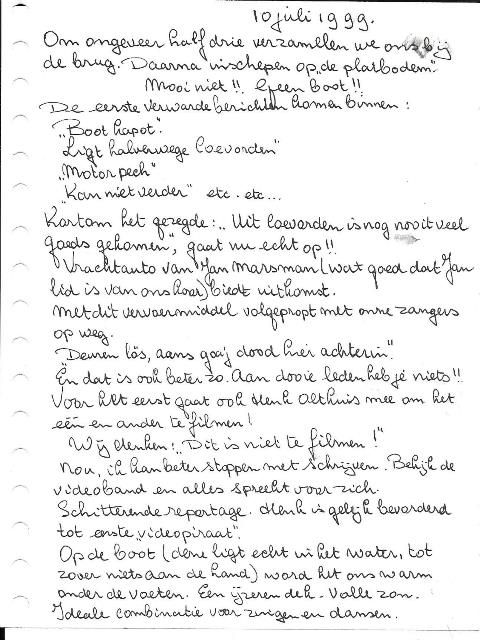 10 juli 1999.
Om ongeveer half drie verzamelen we ons bij
de brug. Daarna inschepen op „de platbodem".
Mooi niet!! Geen boot!!
De eerste verwarde berichten komen binnen:
„Boot kapot".
„Ligt halverwege Coevorden"
„Motorpech"
„Kan niet verder" etc. etc...
Kortom het gezegde: „Uit Coevorden is nog nooit veel
goeds gekomen", gaat nu echt op!!
Vrachtauto van Jan Marsman (wat goed dat Jan
lid is van ons koor) biedt uitkomst.
Met dit vervoermiddel volgepropt met onze zangers
op weg.
„Deuren lös, aans goaj dood hier achterin".
En dat is ook beter zo. Aan dooie leden heb je niets!!
Voor het eerst gaat ook Henk Althuis mee om het
één en ander te filmen!
Wij denken: „Dit is niet te filmen!"
Nou, ik kan beter stoppen met schrijven. Bekijk de
videoband en alles spreekt voor zich.
Schitterende reportage. Henk is gelijk bevorderd
tot eerste „videopiraat".
Op de boot (deze ligt echt in het water, tot
zover niets aan de hand) word het ons warm
onder de voeten. Een ijzeren dek. Volle zon.
Ideale combinatie voor zingen en dansen.